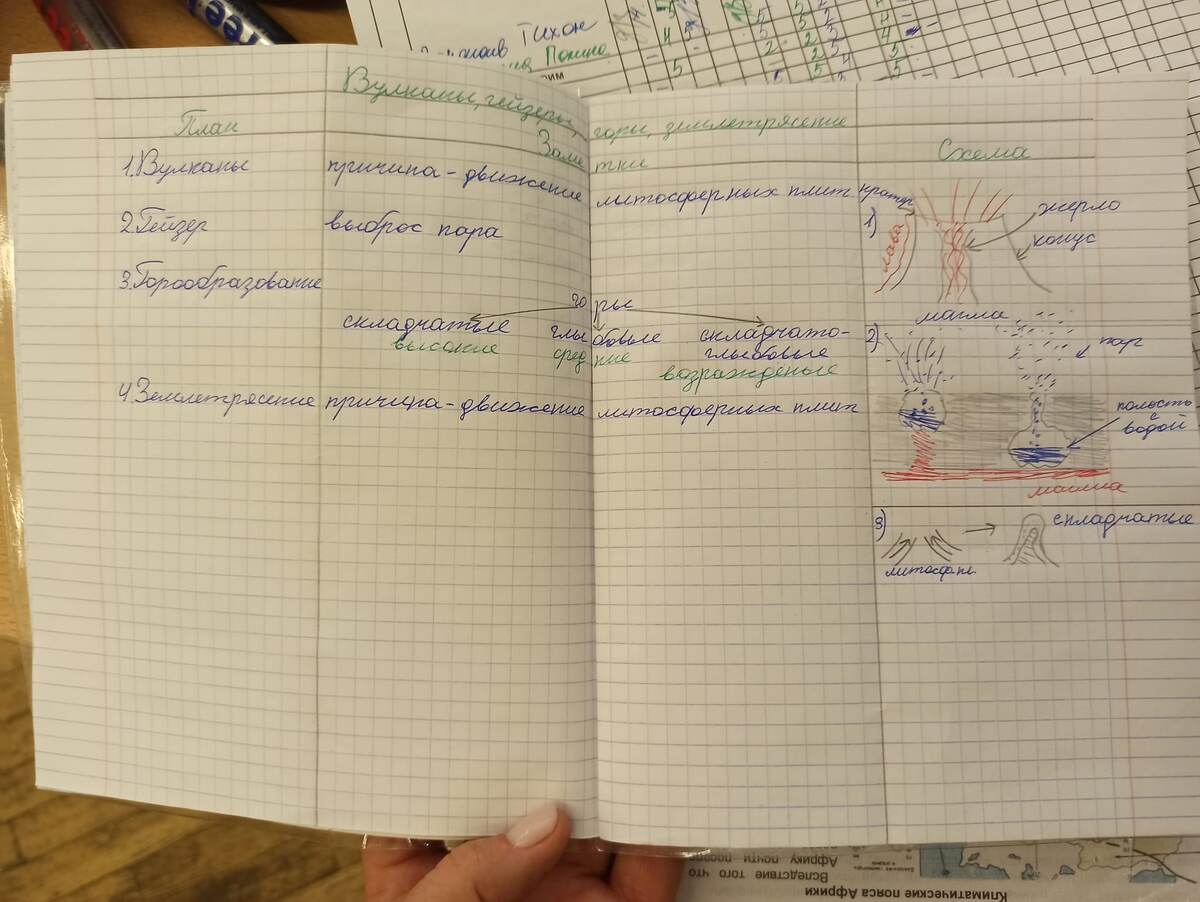 Тихон
Полина
рим
Вулканы, гейзеры, горы, землетрясение
План
Заметки
Схема
1. Вулканы причина - движение литосферных плит
кратер
1)
лава
жерло
конус
магма
2 Гейзер выброс пара
2)
пар
полость
с
водой
магма
3. Горообразование
горы
складчатые глыбовые складчато-
глыбовые
высокие средние возражденые
4. Землетрясение причина - движение литосферных плит
3)
складчатые
литосф. пл.
Вследствие того что
Африку почти посере
Климатические пояса Африки